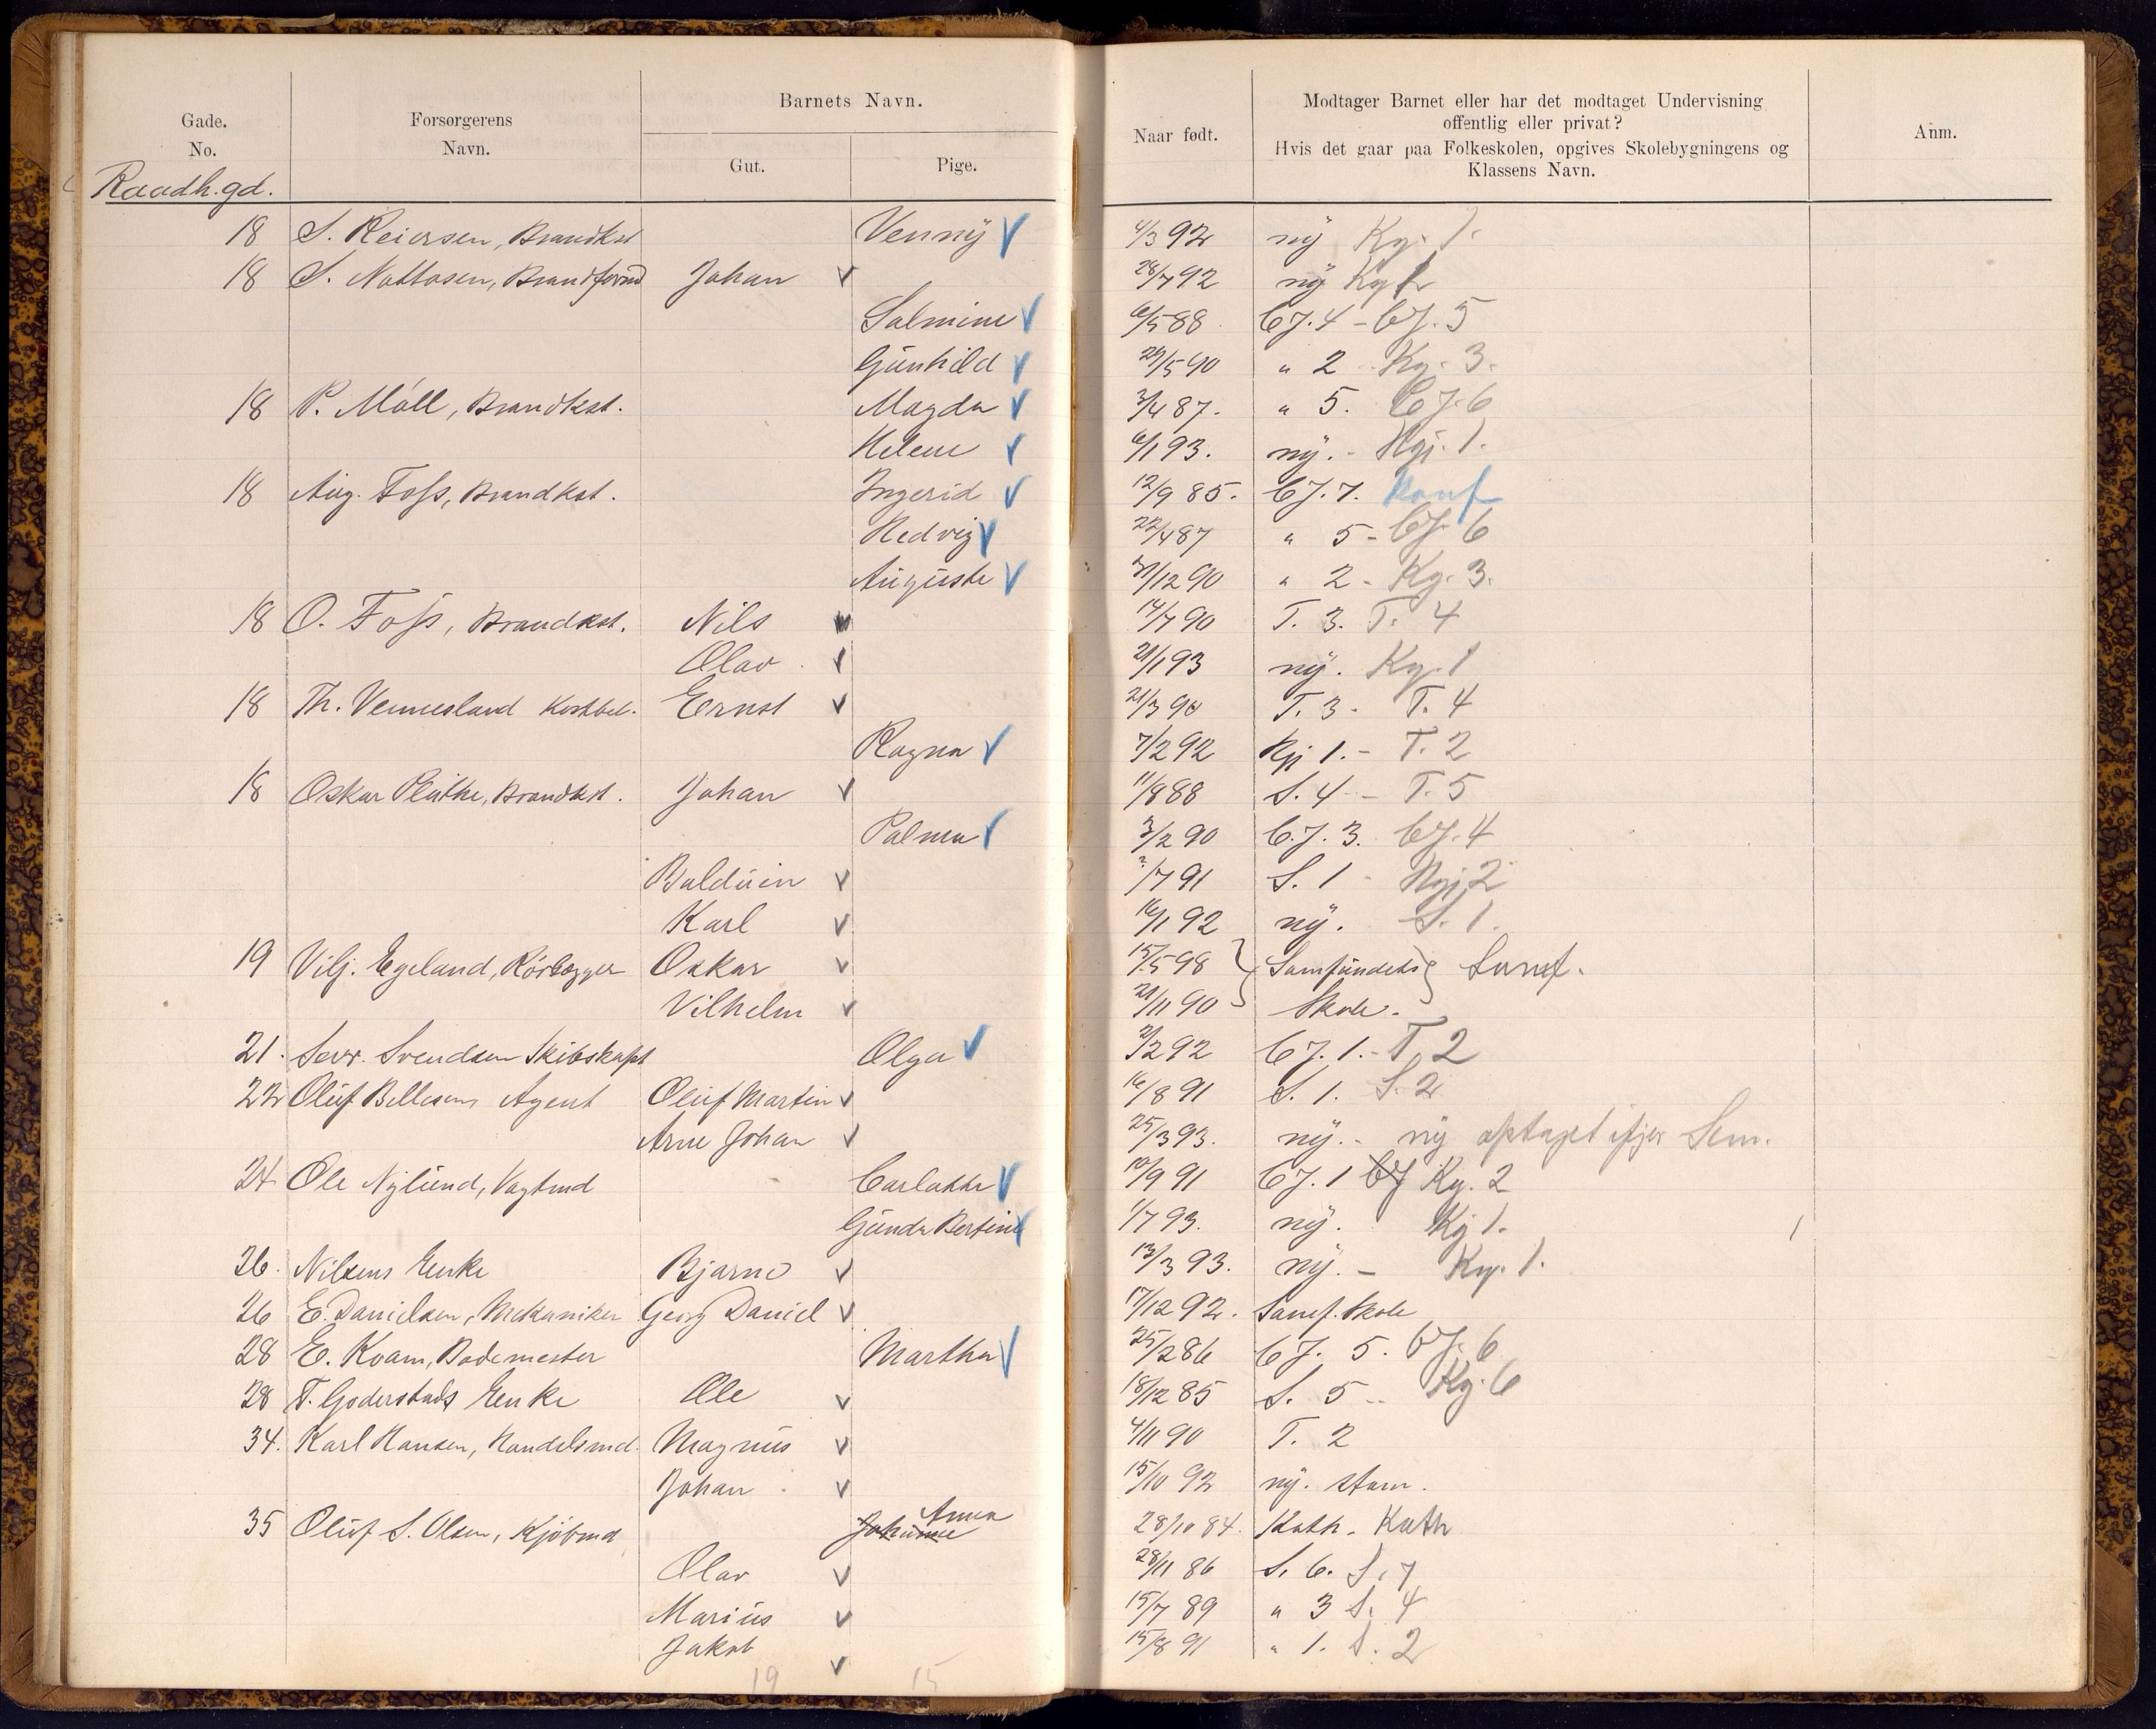 Gade.
No.
Forsørgerens
Navn.
Barnets Navn.
Gut.
Pige.
Naar født.
Modtager Barnet eller har det modtaget Undervisning
offentlig eller privat?
Hvis det gaar paa Folkeskolen, opgives Skolebygningens og
Klassens Navn.
Anm.
Raadh.gd.
18 S. Reiersen, Brandkst Venny 4/3 92 ny Kg. 1.
18 S. Nottosen, Johan 28/7 92 ny Kg 1
Salmine 6/5 88 CJ. 4 - CJ. 5
Gunhild 29/5 90 " 2 Kg. 3.
18 P. Möll, Brandkst. Magda 3/4 87. " 5. CJ. 6
Helene 6/1 93. ny. - Kgj. 1.
18 Aug. Foss, Brandkst. Ingerid 12/9 85. CJ. 7. Konf
Hedvig 22/4 87 " 5 - CJ. 6
Auguste 31/12 90 " 2 - Kg. 3.
18 O. Foss, Brandkst. Nils 14/7 90 T. 3. T. 4
Olav 21/1 93 ny. Kg. 1
18 Th. Vennesland Ernst 21/3 90 T. 3. T. 4
Ragna 7/2 92 Kgj 1. - T. 2
18 Oskar Brandkst. Johan 11/8 88 S. 4 - T. 5
Palma 3/2 90 C.J. 3. CJ. 4
Balduin ?/7 91 S. 1 - Kgj 2
Karl 16/1 92 ny. S. 1.
19 Vilj. Egeland, Rörlægger Oskar 15/5 98 Samfundets Samf.
Vilhelm 21/11 90 Skole.
21. Sevr. Svendsen Skibskapt Olga 2/2 92 CJ. 1. - T. 2
22 Oluf Bellesens Agent Oluf Martin 16/8 91 S. 1. S. 2
Arne Johan 25/3 93. ny. - ny optaget ifjor Sem.
24 Ole Nylund, Vagtmd Carlotte 10/9 91 CJ. 1 CJ Kg. 2
Gunda Bertine 1/7 93. ny. Kg 1.
26. Nilsens Enke Bjarne 13/3 93. ny. - Kg. 1.
26 E. Danielsen, Mekaniker Georg Daniel 17/12 92. Samf. Skole
28 E. Kvam, Bademester Martha 25/2 86 CJ. 5. CJ. 6
28 T. Goderstads Enke Ole 18/12 85 S. 5 - Kg. 6
34. Karl Hansen, Handelsmd. Magnus 4/11 90 T. 2
Johan 15/10 92 ny. stam.
35 Oluf S. Olsen, Kjöbmd Johanne Anna 28/10 84. Kath. Kath
Olav 28/11 86 S. 6. S. 7
Marius 15/7 89 " 3 S. 4
Jakob 15/8 91 " 1. S. 2
19 15